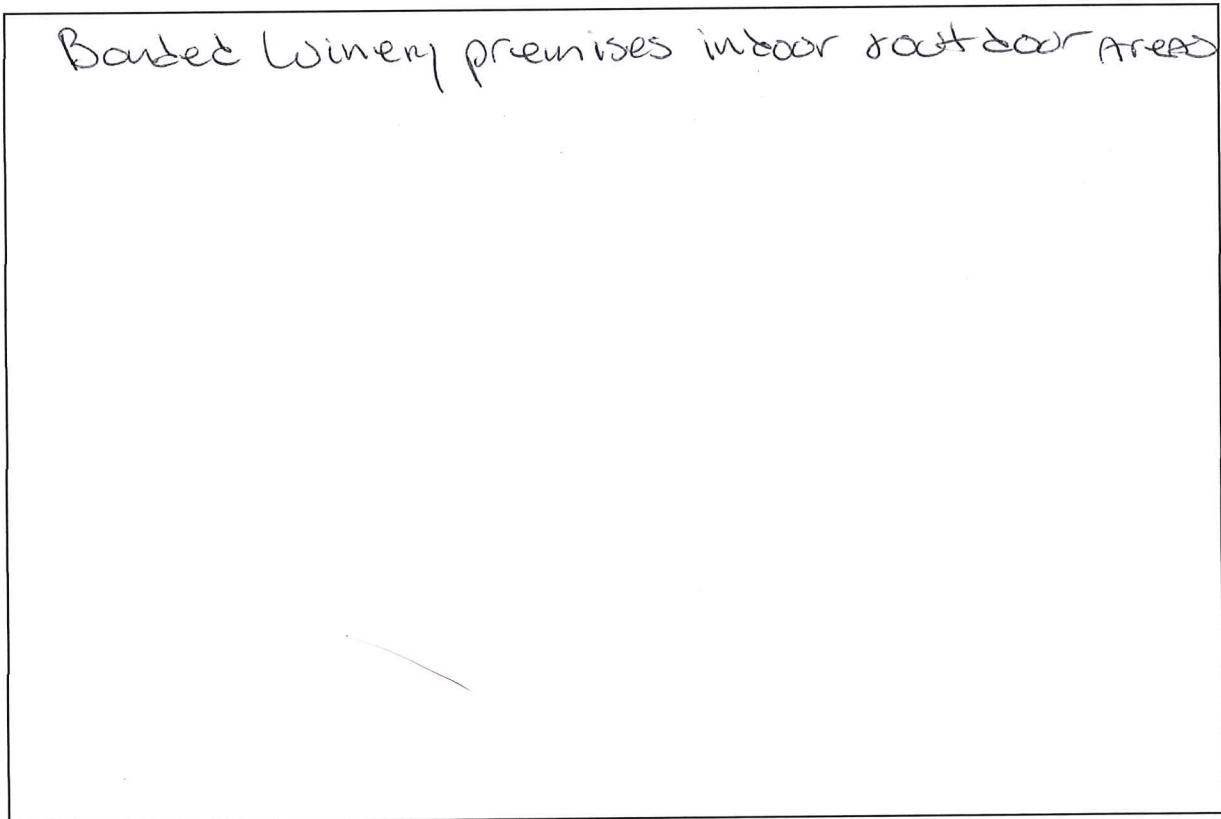 Bonded Winery premises indoor & outdoor Areas